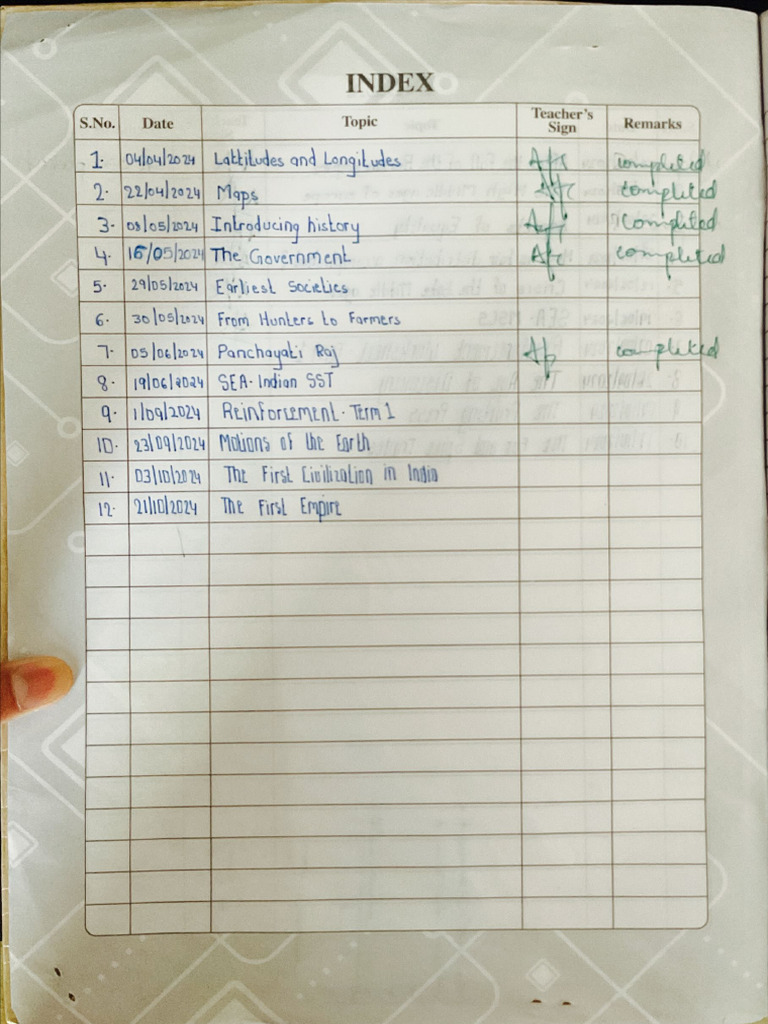 INDEX
S.No. Date Topic Teacher's Sign Remarks
1. 04/04/2024 Lattitudes and Longitudes completed
2. 22/04/2024 Maps completed
3. 08/05/2024 Introducing history completed
4. 16/05/2024 The Government completed
5. 29/05/2024 Earliest Societies
6. 30/05/2024 From Hunters to Farmers
7. 05/06/2024 Panchayati Raj completed
8. 19/06/2024 SEA-Indian SST
9. 1/09/2024 Reinforcement-Term 1
10. 23/09/2024 Motions of the Earth
11. 03/10/2024 The First Civilization in India
12. 21/10/2024 The First Empire